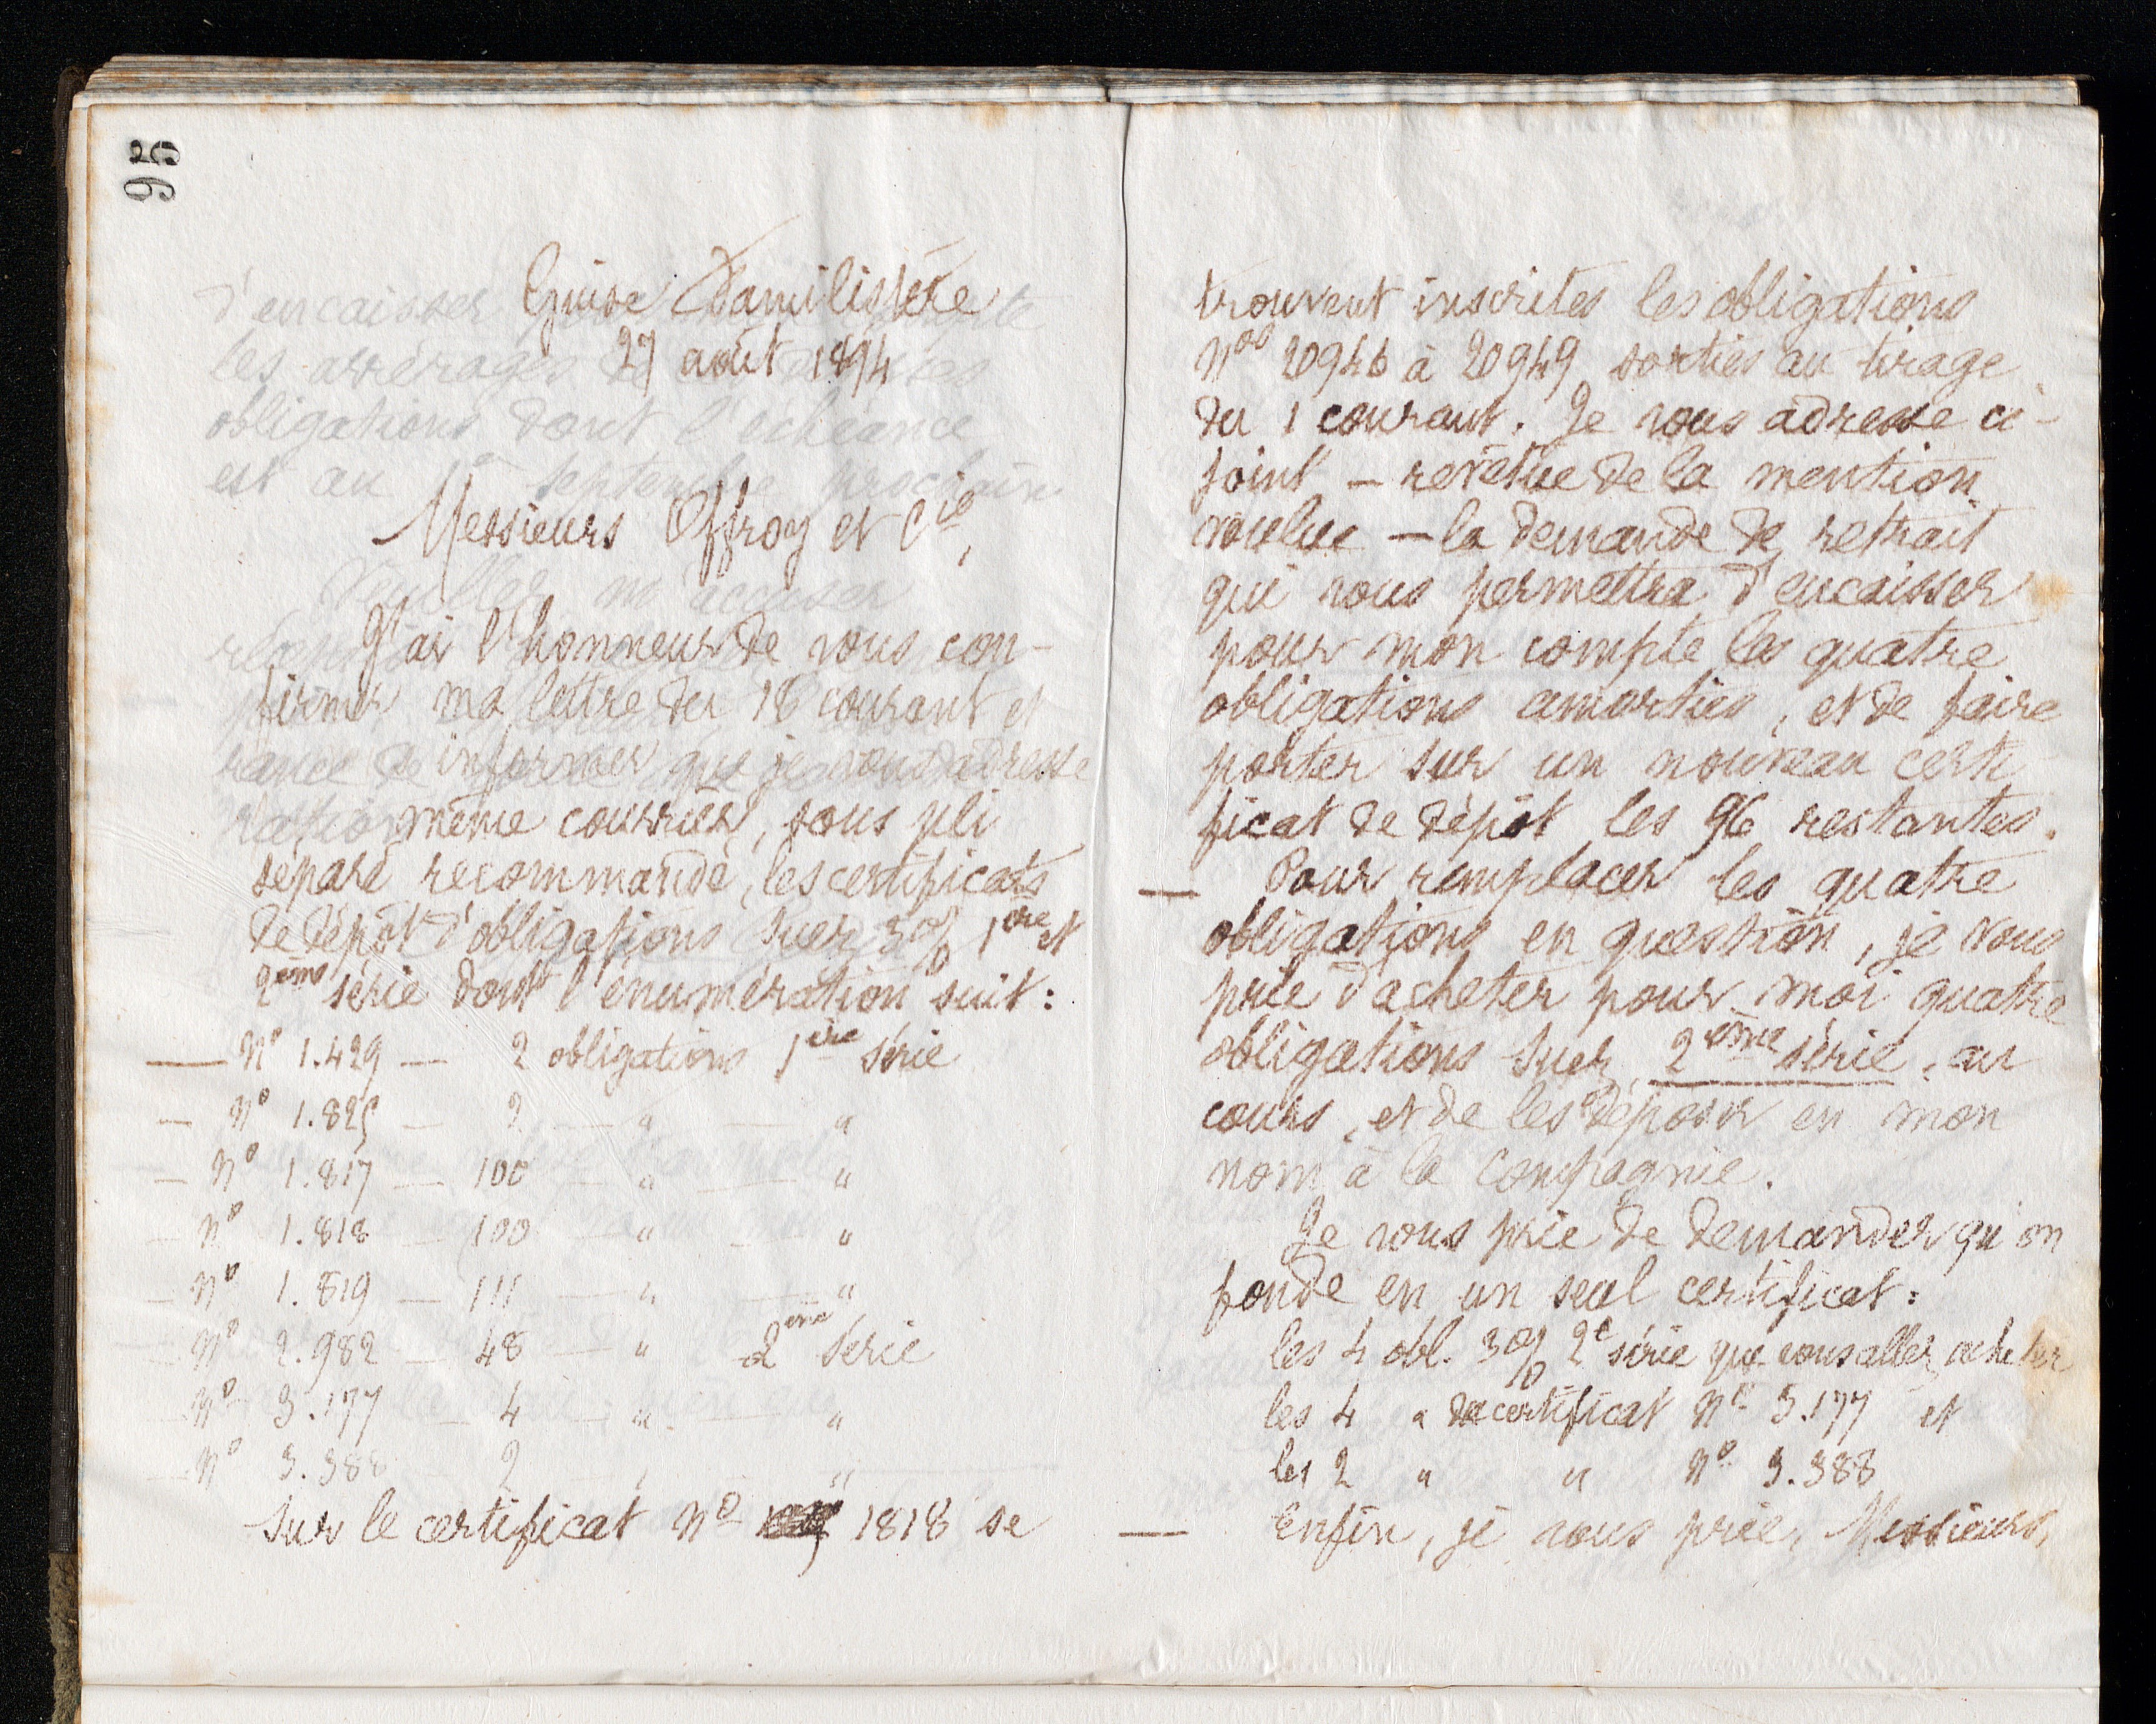 95
Guise Familistère
27 août 1894
Messieurs Offroy et Cie,
J'ai l'honneur de vous con-
firmer ma lettre du 18 courant et
de informer que je vous adresse
même courrier, sous pli
séparé recommandé, les certificats
de dépôt d'obligations Suez 3% 1ère et
2ème série dont l'énumération suit :
— No 1.429 — 2 obligations 1ère série
— No 1.825 — 2 — " — "
— No 1.817 — 100 — " — "
— No 1.818 — 100 — " — "
— No 1.819 — 111 — " — "
— No 2.982 — 48 — " 2ème série
— No 3.177 — 4 — " — "
— No 3.388 2 " "
Sur le certificat No 1818 se
trouvent inscrites les obligations
Nos 20946 à 20949 sorties au tirage
du 1 courant. Je vous adresse ci-
joint — revêtue de la mention
voulue — la demande de retrait
qui vous permettra d'encaisser
pour mon compte les quatre
obligations amorties, et de faire
porter sur un nouveau certi
ficat de dépôt les 96 restantes.
— Pour remplacer les quatre
obligations en question, je vous
prie d'acheter pour moi quatre
obligations Suez, 2ème série, au
cours, et de les déposer en mon
nom à la Compagnie.
Je vous prie de demander qu'on
fonde en un seul certificat :
les 4 obl. 3% 2e série que vous allez acheter
les 4 " du certificat No 3.177 et
les 2 " " No 3.388
— Enfin, je vous prie, Messieurs,